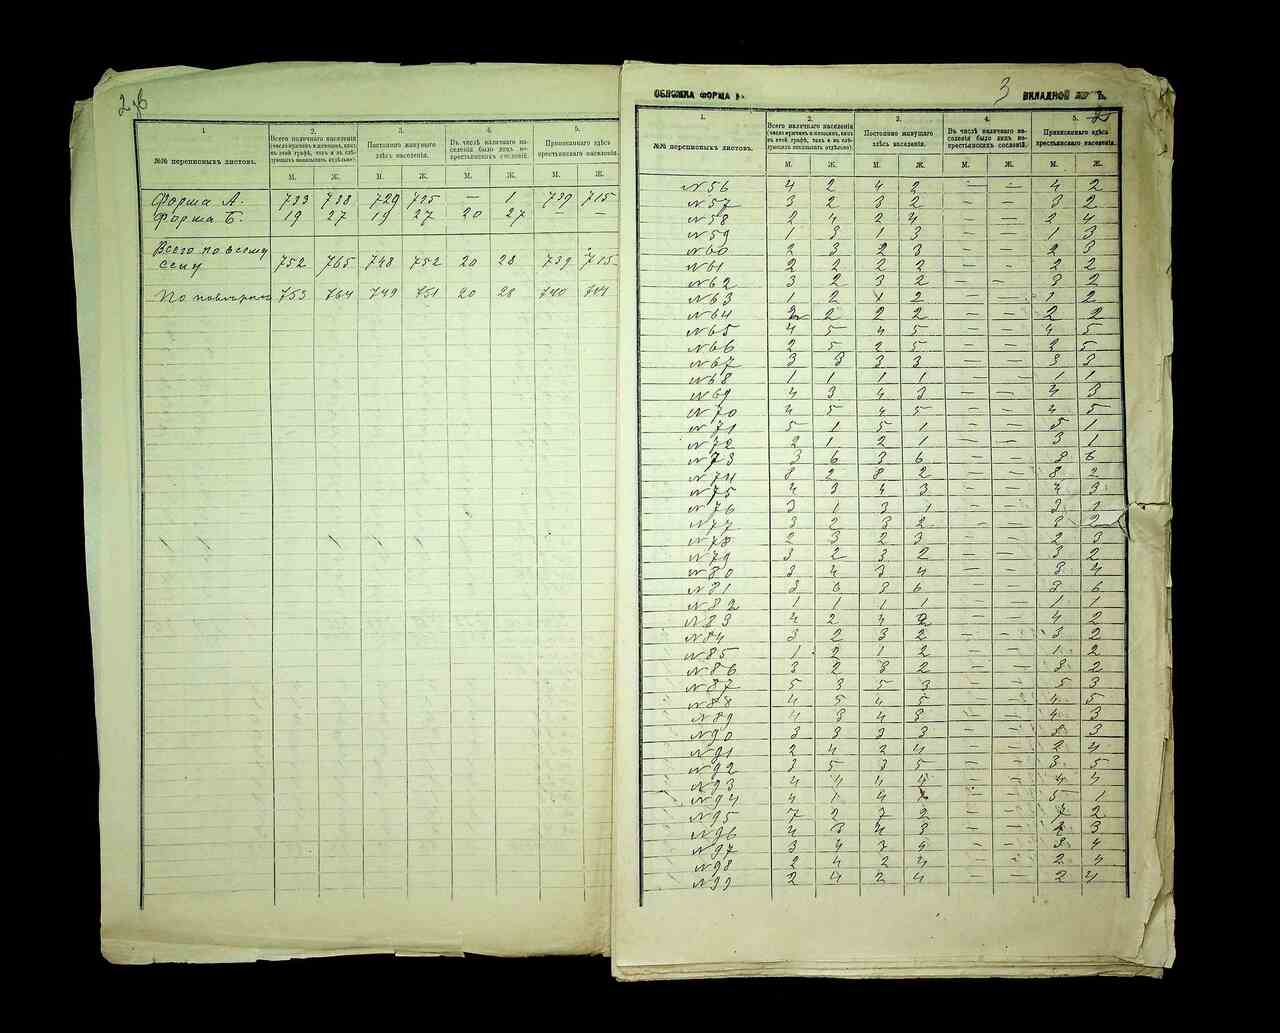 2 об
1.
2.
3.
4.
5.
№№ переписныхъ листовъ.
Всего наличнаго населенія
(число мужчинъ и женщинъ, какъ въ этой графѣ, такъ и въ слѣдующихъ показывать отдѣльно).
Постоянно живущаго здѣсь населенія.
Въ числѣ наличнаго населенія было лицъ некрестьянскихъ сословій.
Приписаннаго здѣсь крестьянскаго населенія.
М. Ж. М. Ж. М. Ж. М. Ж.
Форма А. 733 738 729 725 — 1 739 715
Форма Б. 19 27 19 27 20 27 — —
Всего по всему
селу 752 765 748 752 20 28 739 715
По повѣркѣ 753 764 749 751 20 28 740 714
ОБЛОЖКА ФОРМА
3
ВКЛАДНОЙ
1.
2.
3.
4.
5.
№№ переписныхъ листовъ.
Всего наличнаго населенія
(число мужчинъ и женщинъ, какъ въ этой графѣ, такъ и въ слѣдующихъ показывать отдѣльно).
Постоянно живущаго здѣсь населенія.
Въ числѣ наличнаго населенія было лицъ некрестьянскихъ сословій.
Приписаннаго здѣсь крестьянскаго населенія.
М. Ж. М. Ж. М. Ж. М. Ж.
№ 56 4 2 4 2 — — 4 2
№ 57 3 2 3 2 — — 3 2
№ 58 2 4 2 4 — — 2 4
№ 59 1 3 1 3 — — 1 3
№ 60 2 3 2 3 — — 2 3
№ 61 2 2 2 2 — — 2 2
№ 62 3 2 3 2 — — 3 2
№ 63 1 2 1 2 — — 1 2
№ 64 2 2 2 2 — — 2 2
№ 65 4 5 4 5 — — 4 5
№ 66 2 5 2 5 — — 2 5
№ 67 3 3 3 3 — — 3 3
№ 68 1 1 1 1 — — 1 1
№ 69 4 3 4 3 — — 4 3
№ 70 4 5 4 5 — — 4 5
№ 71 5 1 5 1 — — 5 1
№ 72 2 1 2 1 — — 3 1
№ 73 3 6 3 6 — — 3 6
№ 74 8 2 8 2 — — 8 2
№ 75 4 3 4 3 — — 4 3
№ 76 3 1 3 1 — — 3 1
№ 77 3 2 3 2 — — 3 2
№ 78 2 3 2 3 — — 2 3
№ 79 3 2 3 2 — — 3 2
№ 80 3 4 3 4 — — 3 4
№ 81 3 6 3 6 — — 3 6
№ 82 1 1 1 1 — — 1 1
№ 83 4 2 4 2 — — 4 2
№ 84 3 2 3 2 — — 3 2
№ 85 1 2 1 2 — — 1 2
№ 86 3 2 3 2 — — 3 2
№ 87 5 3 5 3 — — 5 3
№ 88 4 5 4 5 — — 4 5
№ 89 4 3 4 3 — — 4 3
№ 90 3 3 3 3 — — 3 3
№ 91 2 4 2 4 — — 2 4
№ 92 3 5 3 5 — — 3 5
№ 93 4 4 4 4 — — 4 4
№ 94 4 1 4 — — 5 1
№ 95 7 2 7 2 — — 7 2
№ 96 4 3 4 3 — — 4 3
№ 97 3 4 3 4 — — 3 4
№ 98 2 4 2 4 — — 2 4
№ 99 2 4 2 4 — — 2 4